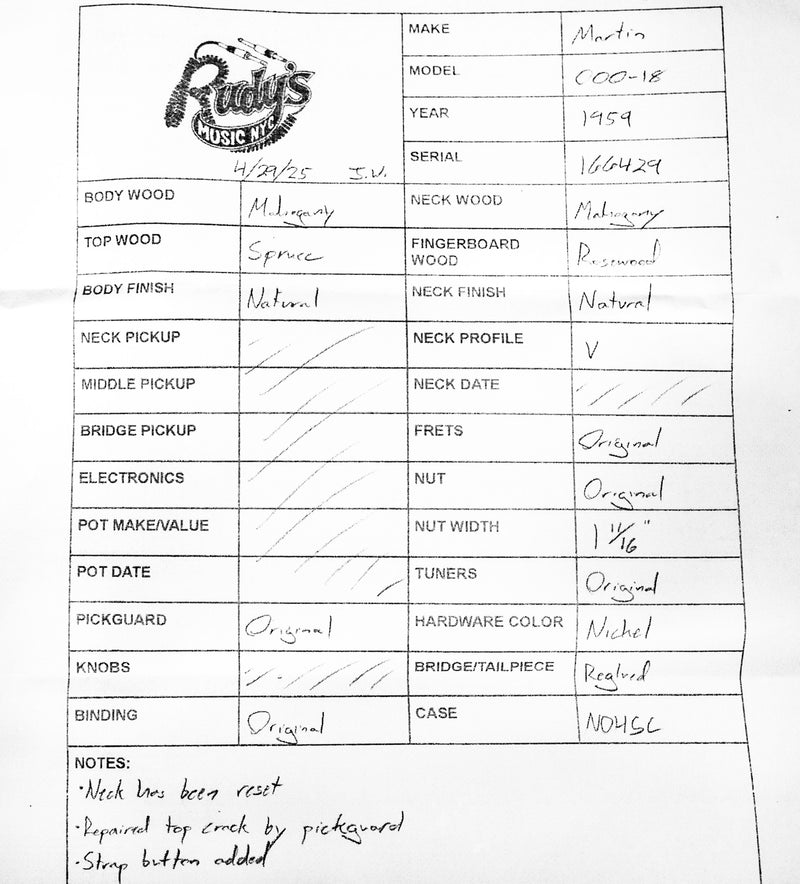 Rudy's
MUSIC NYC
4/29/25 J.V.
MAKE Martin
MODEL 000-18
YEAR 1959
SERIAL 166429
BODY WOOD Mahogany NECK WOOD Mahogany
TOP WOOD Spruce FINGERBOARD WOOD Rosewood
BODY FINISH Natural NECK FINISH Natural
NECK PICKUP NECK PROFILE V
MIDDLE PICKUP NECK DATE
BRIDGE PICKUP FRETS Original
ELECTRONICS NUT Original
POT MAKE/VALUE NUT WIDTH 1 11/16"
POT DATE TUNERS Original
PICKGUARD Original HARDWARE COLOR Nickel
KNOBS BRIDGE/TAILPIECE Reglued
BINDING Original CASE NOHSC
NOTES:
·Neck has been reset
·Repaired top crack by pickguard
·Strap button added